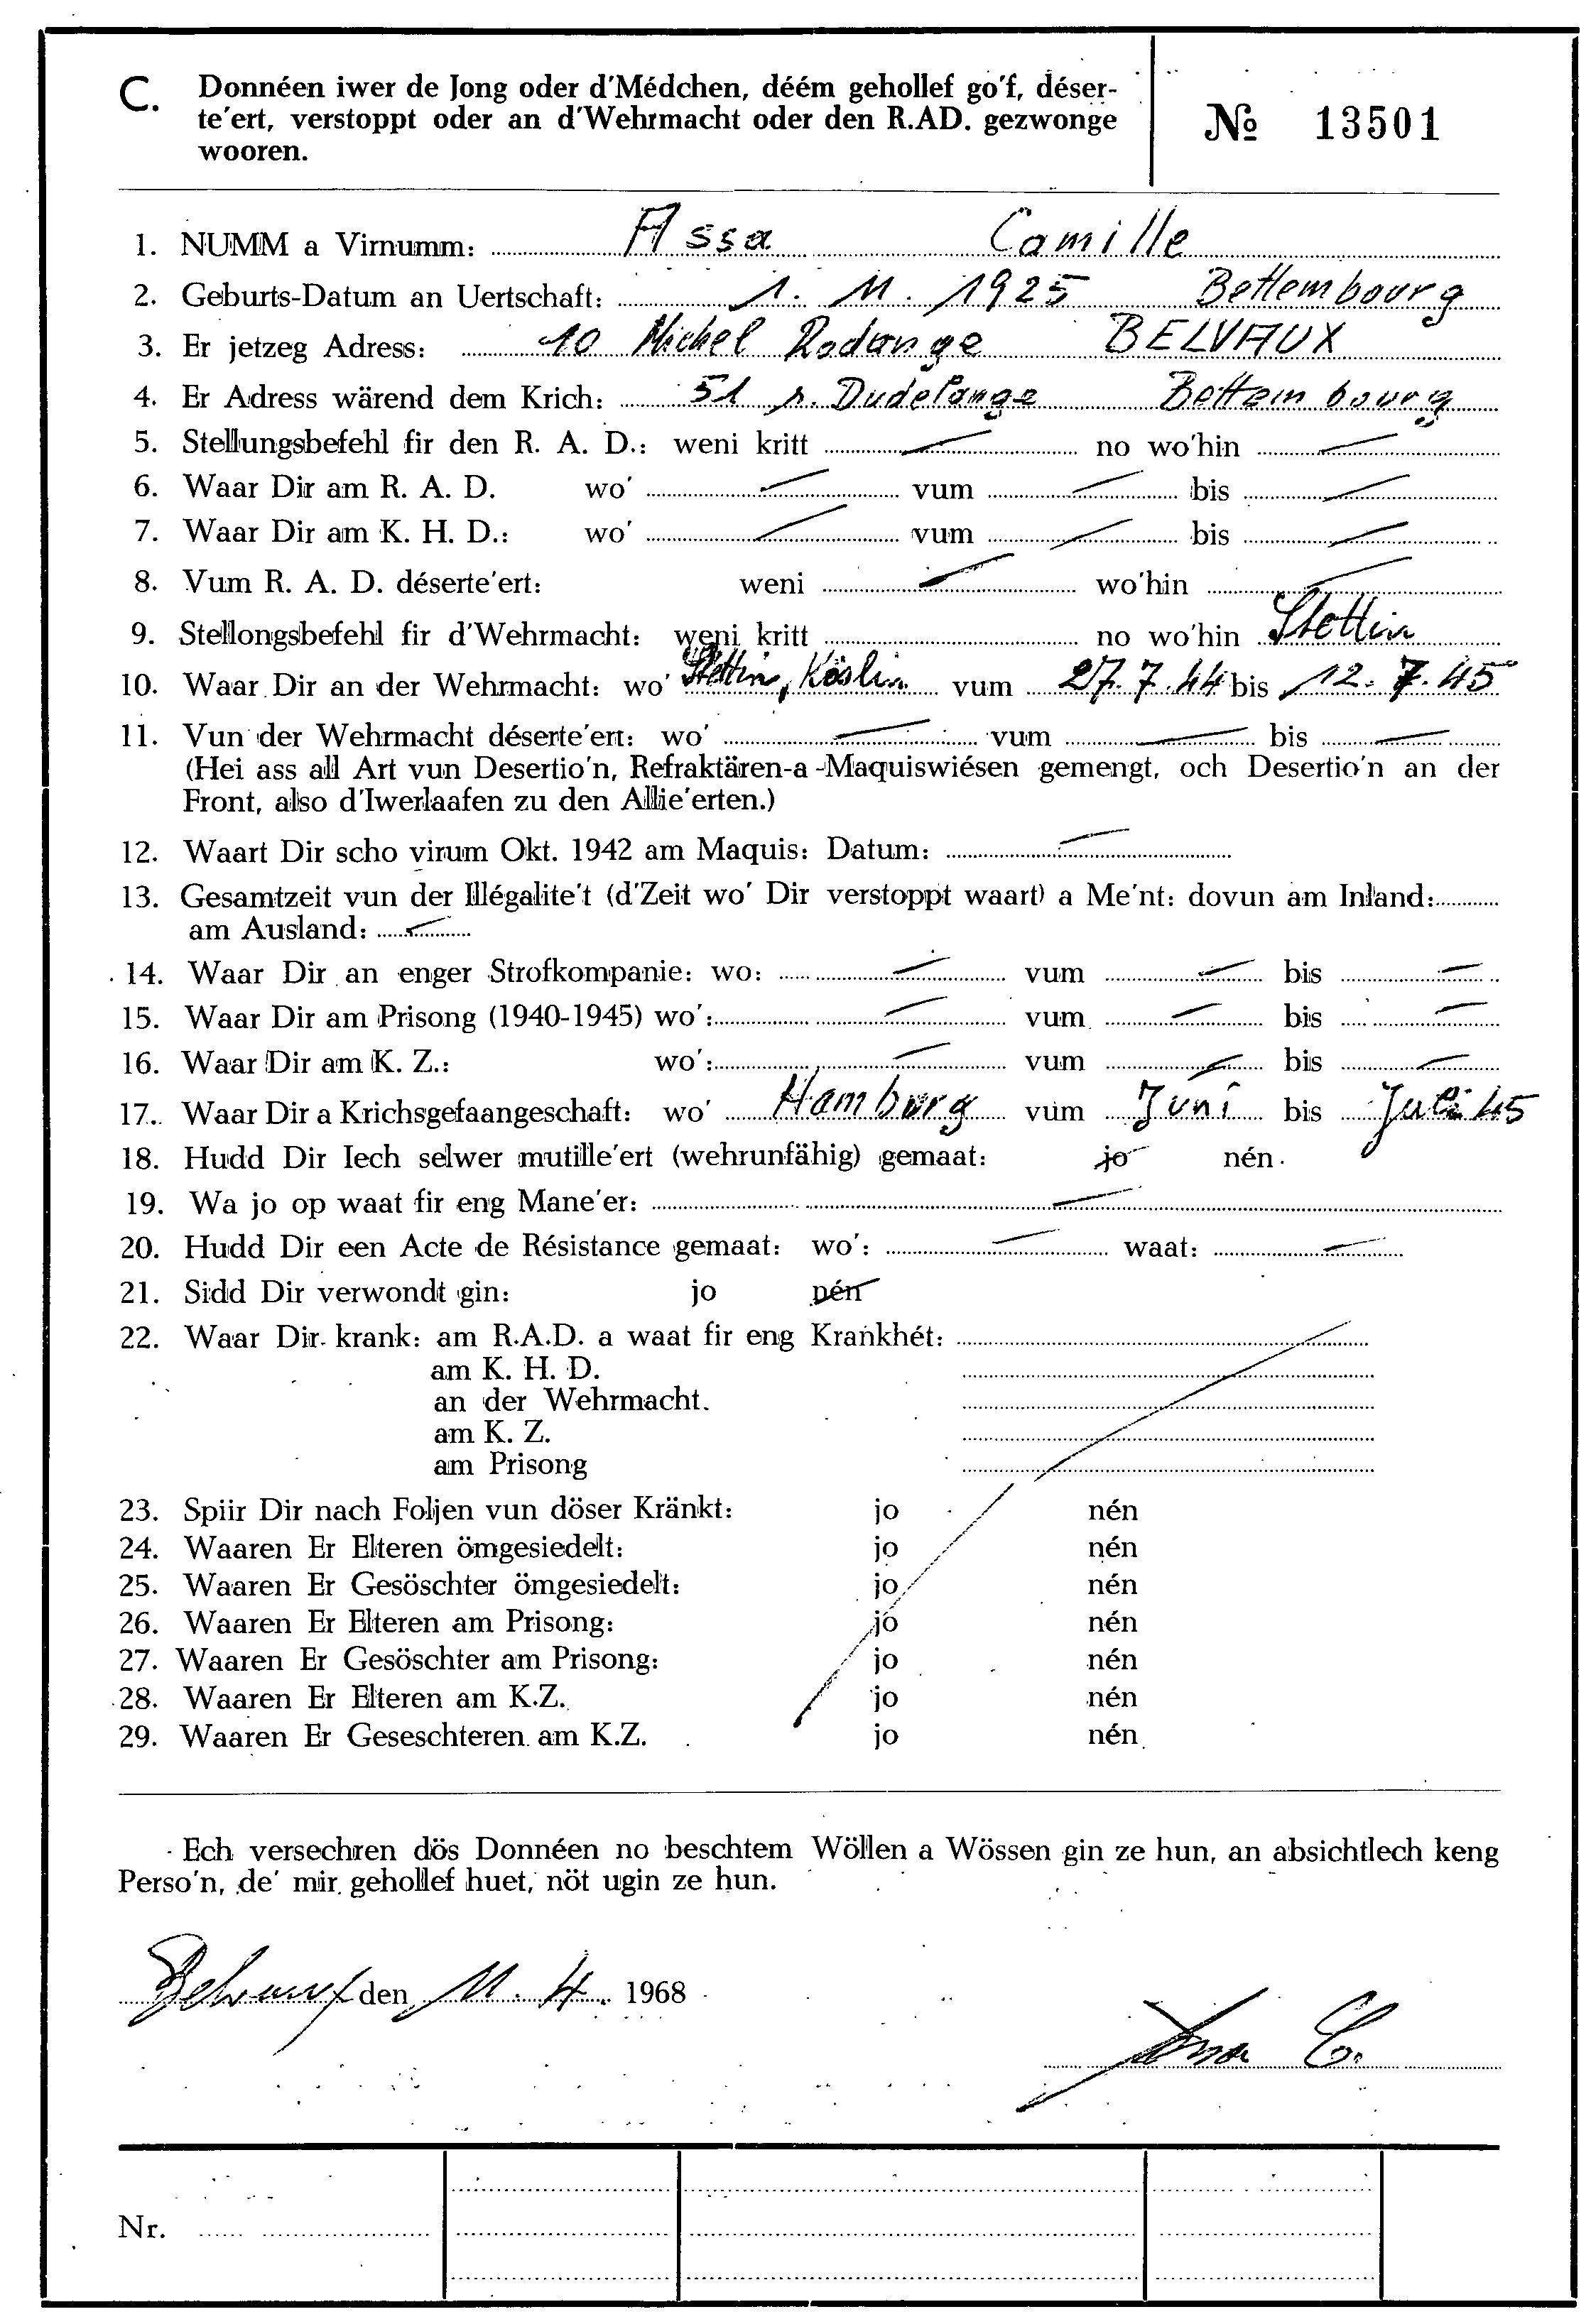 C. Donnéen iwer de Jong oder d'Médchen, déém gehollef go'f, déser-
te'ert, verstoppt oder an d'Wehrmacht oder den R.AD. gezwonge
wooren.
№ 13501
1. NUMM a Virnumm: Assa Camille
2. Geburts-Datum an Uertschaft: 1. 11. 1925 Bettembourg
3. Er jetzeg Adress: 10 Michel Rodange BELVAUX
4. Er Adress wärend dem Krich: 51 r. Dudelange Bettembourg
5. Stellungsbefehl fir den R. A. D.: weni kritt — no wo'hin —
6. Waar Dir am R. A. D. wo' — vum — bis —
7. Waar Dir am K. H. D.: wo' — vum — bis —
8. Vum R. A. D. déserte'ert: weni — wo'hin —
9. Stellongsbefehl fir d'Wehrmacht: weni kritt no wo'hin Stettin
10. Waar Dir an der Wehrmacht: wo' Stettin, Köslin vum 27. 7. 44 bis 12. 7. 45
11. Vun der Wehrmacht déserte'ert: wo' — vum — bis —
(Hei ass all Art vun Desertio'n, Refraktären-a-Maquiswiésen gemengt, och Desertio'n an der
Front, also d'Iwerlaafen zu den Allie'erten.)
12. Waart Dir scho virum Okt. 1942 am Maquis: Datum: —
13. Gesamtzeit vun der Illégalite't (d'Zeit wo' Dir verstoppt waart) a Me'nt: dovun am Inland:
am Ausland: —
14. Waar Dir an enger Strofkompanie: wo: — vum — bis —
15. Waar Dir am Prisong (1940-1945) wo': — vum — bis —
16. Waar Dir am K. Z.: wo': — vum — bis —
17. Waar Dir a Krichsgefaangeschaft: wo' Hamburg vum Juni bis Juli 45
18. Hudd Dir Iech selwer mutille'ert (wehrunfähig) gemaat: jo nén
19. Wa jo op waat fir eng Mane'er: —
20. Hudd Dir een Acte de Résistance gemaat: wo': — waat: —
21. Sidd Dir verwondt gin: jo nén
22. Waar Dir krank: am R.A.D. a waat fir eng Krankhét:
am K. H. D.
an der Wehrmacht.
am K. Z.
am Prisong
23. Spiir Dir nach Foljen vun döser Kränkt: jo nén
24. Waaren Er Elteren ömgesiedelt: jo nén
25. Waaren Er Gesöschter ömgesiedelt: jo nén
26. Waaren Er Elteren am Prisong: jo nén
27. Waaren Er Gesöschter am Prisong: jo nén
28. Waaren Er Elteren am K.Z. jo nén
29. Waaren Er Geseschteren am K.Z. jo nén
Ech versechren dös Donnéen no beschtem Wöllen a Wössen gin ze hun, an absichtlech keng
Perso'n, de' mir gehollef huet, nöt ugin ze hun.
Belvaux den 11. 4. 1968
Assa C.
Nr.